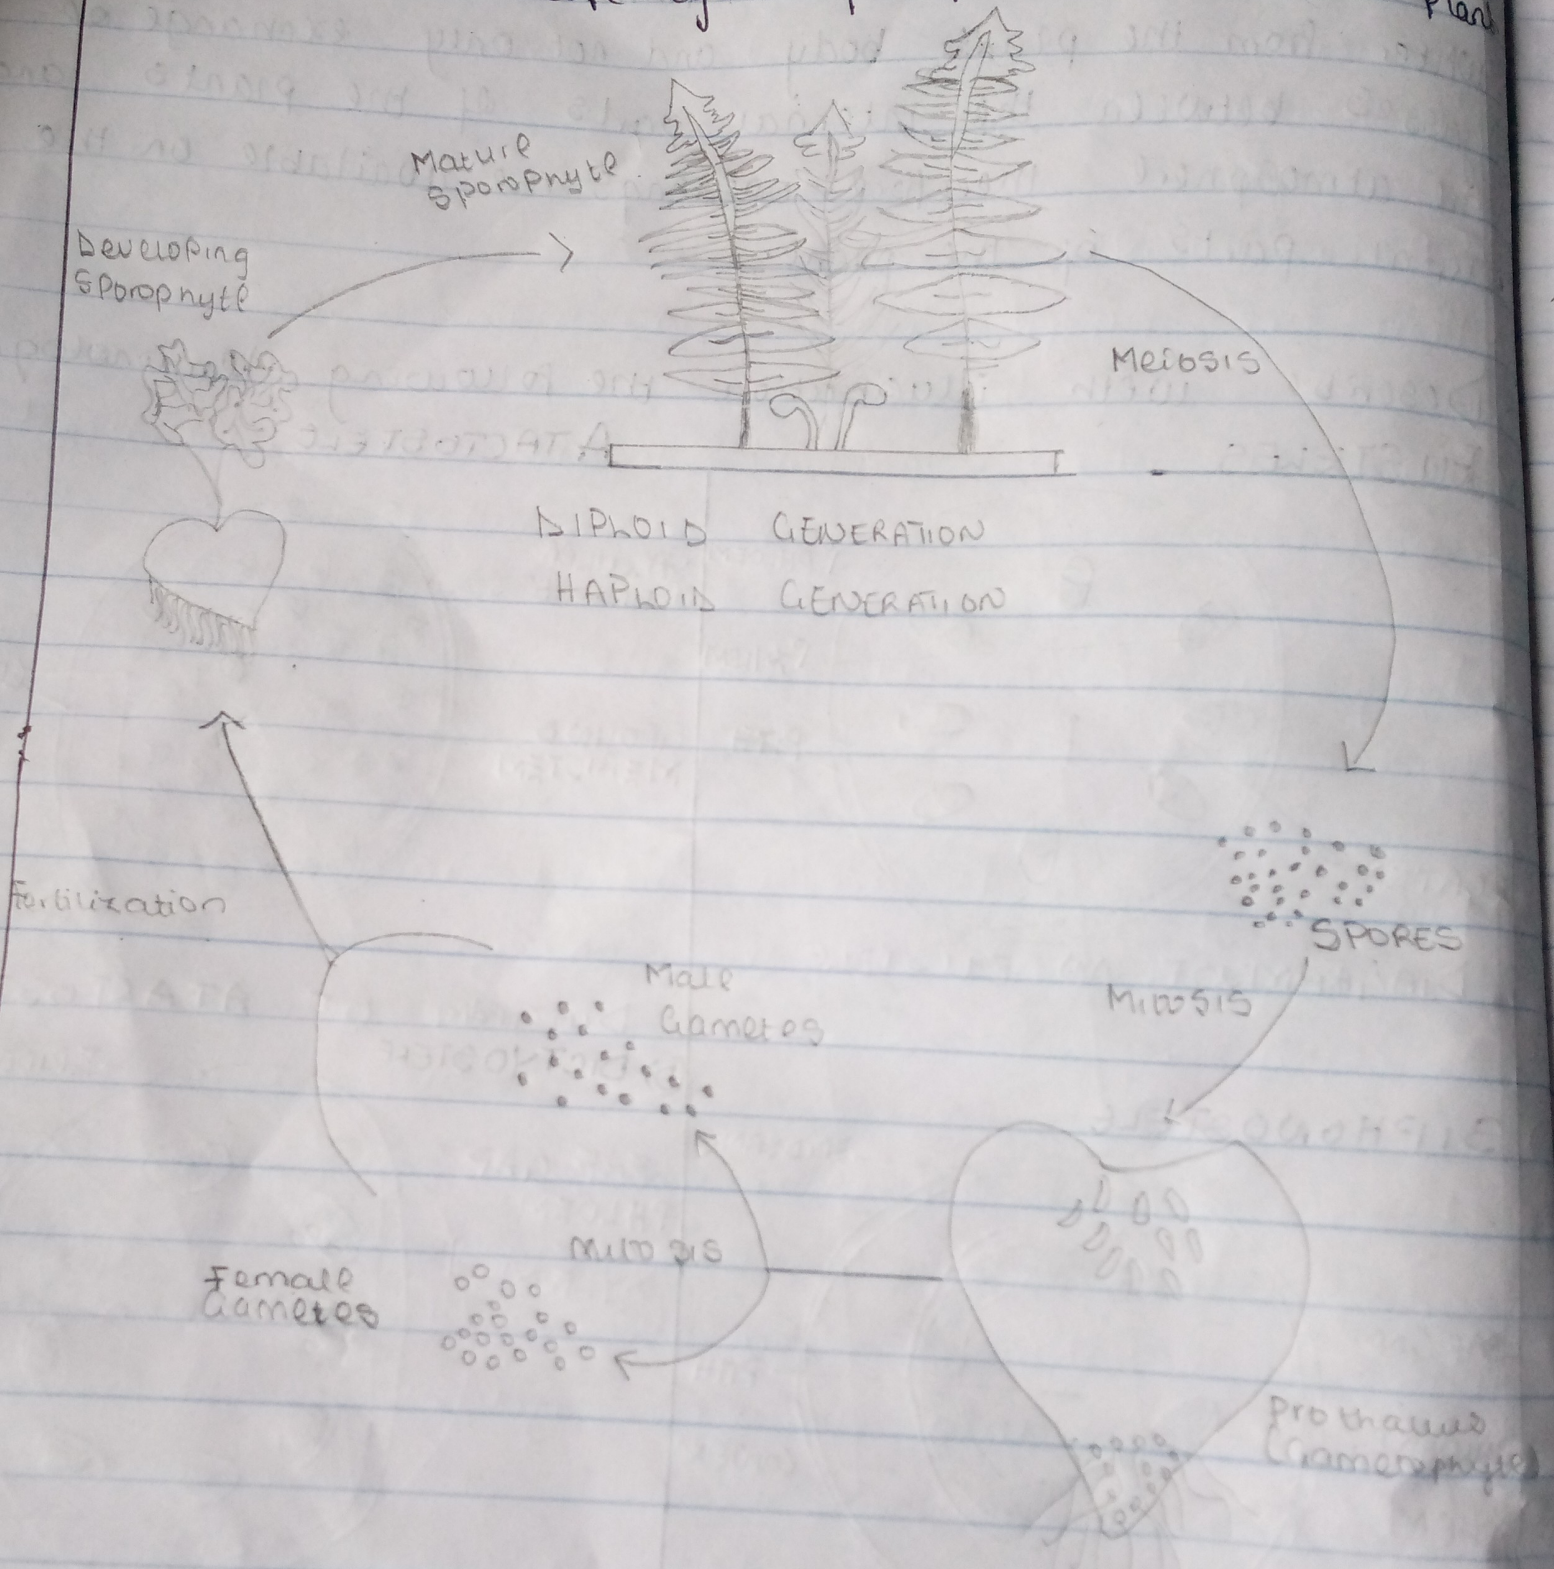 Plant
Mature
Sporophyte
Developing
Sporophyte
Meiosis
DIPLOID GENERATION
HAPLOID GENERATION
Fertilization
SPORES
Male
Gametes
Mitosis
Mitosis
Female
Gametes
Prothallus
(Gametophyte)